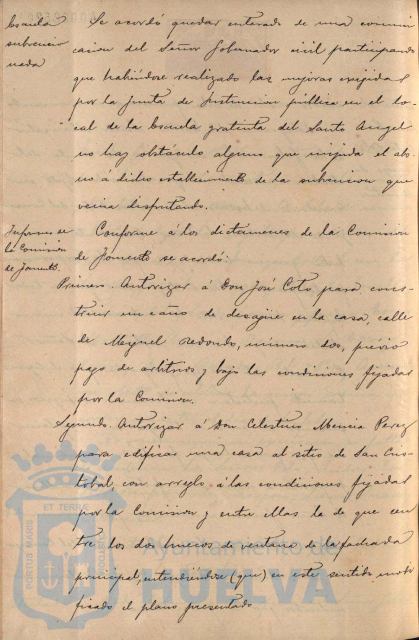 Escuela
subvencio
nada
Se acordó quedar enterado de una comuni
cacion del Señor Gobernador civil participando
que habiéndose realizado las mejoras exigidas
por la Junta de Instruccion pública en el lo-
cal de la Escuela gratuita del Santo Angel
no hay obstáculo alguno que impida el abo-
no á dicho establecimiento de la subvencion que
venia disfrutando.
Informes de
la Comision
de Fomento.
Conforme á los dictámenes de la Comision
de Fomento se acordó:
Primero. Autorizar á Don José Coto para cons-
truir un caño de desagüe en la casa, calle
de Miguel Redondo, número dos, previo
pago de arbitrios y bajo las condiciones fijadas
por la Comision.
Segundo. Autorizar á Don Celestino Mencia Perez
para edificar una casa al sitio de San Cris-
tobal, con arreglo á las condiciones fijadas
por la Comision y entre ellas la de que cen-
tre los dos huecos de ventana de la fachada
principal, entendiéndose (que) en este sentido modi
ficado el plano presentado
PORTUS MARIS
ET TERRAE
CUSTODIA
Ayuntamiento de
HUELVA